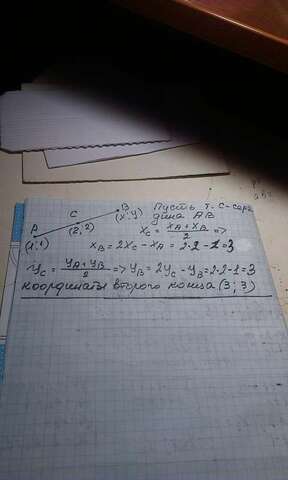 A (1; 1)
C (2, 2)
B (x; y)
Пусть т. C-сере
дина AB
xc = (xA + xB)/2 =>
xB = 2xc - xA = 2·2-1=3
yc = (yA + yB)/2 => yB = 2yc - yB = 2·2-1=3
координаты второго конца (3; 3)